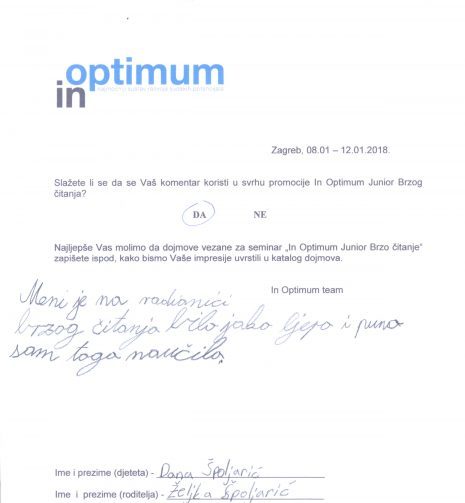 optimum
in
Zagreb, 08.01 – 12.01.2018.
Slažete li se da se Vaš komentar koristi u svrhu promocije In Optimum Junior Brzog
čitanja?
DA NE
Najljepše Vas molimo da dojmove vezane za seminar „In Optimum Junior Brzo čitanje“
zapišete ispod, kako bismo Vaše impresije uvrstili u katalog dojmova.
In Optimum team
Meni je na radianici
brzog čitanja bilo jako ljepo i puno
sam toga naučila.
Ime i prezime (djeteta) - Dana Špoljarić
Ime i prezime (roditelja) - Željka Špoljarić